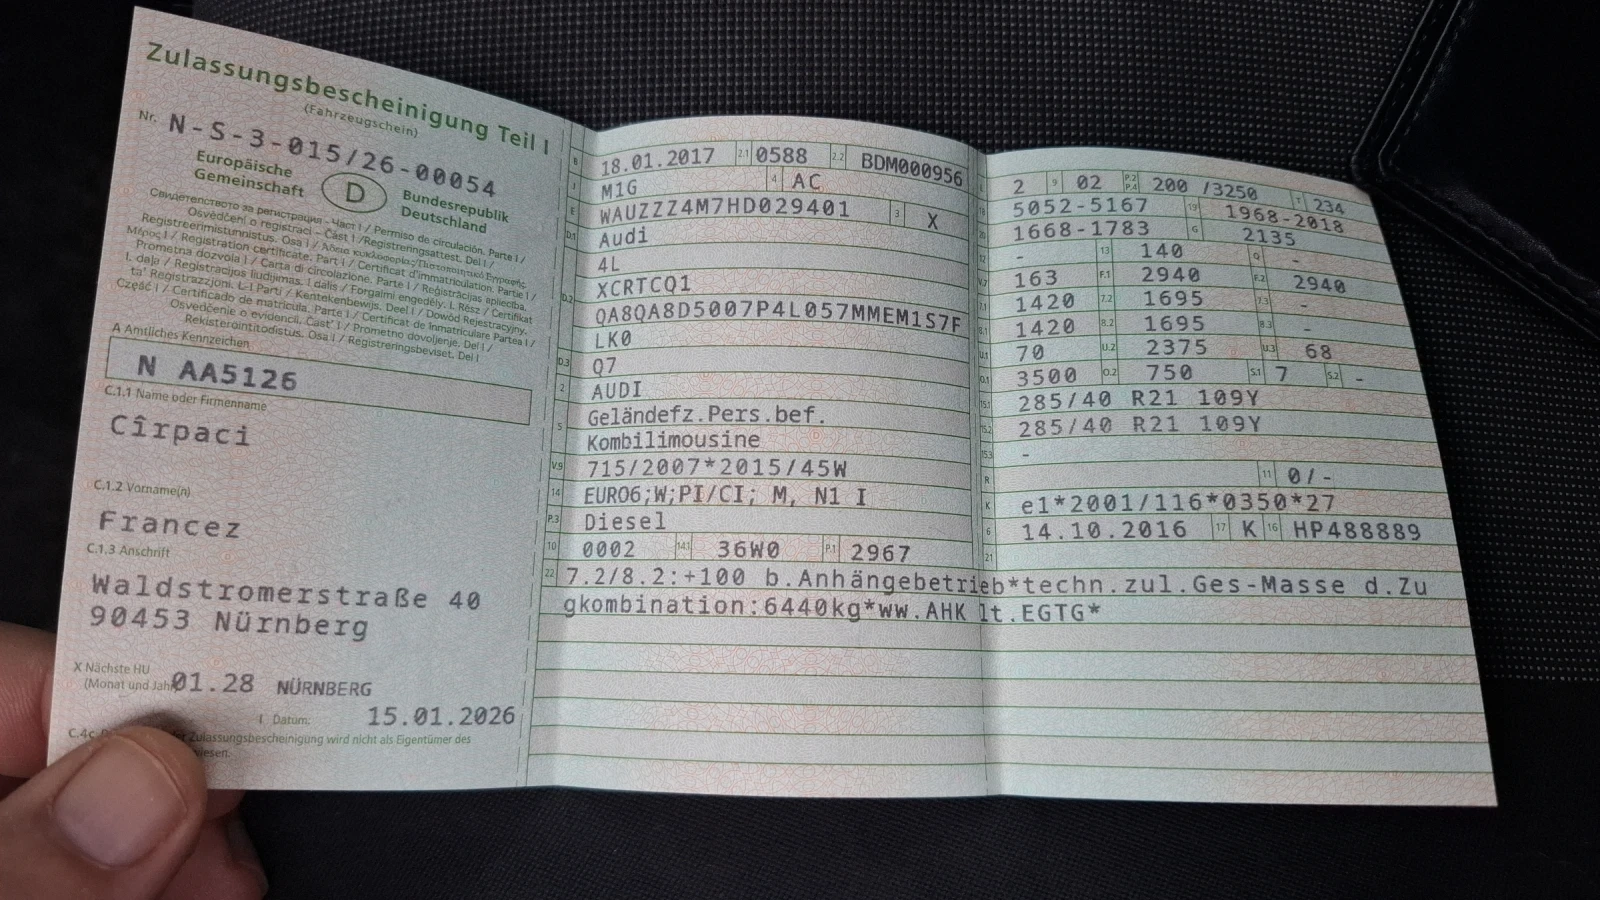 Zulassungsbescheinigung Teil I
(Fahrzeugschein)
Nr. N-S-3-015/26-00054
Europäische Gemeinschaft
D
Bundesrepublik Deutschland
Свидетелство за регистрация - Част I / Permiso de circulación. Parte I /
Osvědčení o registraci - Část I / Registreringsattest. Del I /
Registreerimistunnistus. Osa I / Άδεια κυκλοφορίας
Μέρος I / Registration certificate. Part I / Certificat d'immatriculation. Partie I /
Prometna dozvola I / Carta di circolazione. Parte I / Reģistrācijas apliecība.
I. daļa / Registracijos liudijimas. I dalis / Forgalmi engedély. I. Rész / Ċertifikat
ta' Reġistrazzjoni. L-I Parti / Kentekenbewijs. Deel I / Dowód Rejestracyjny.
Część I / Certificado de matrícula. Parte I / Certificat de înmatriculare Partea I /
Osvedčenie o evidencii. Časť I / Prometno dovoljenje. Del I /
Rekisteröintitodistus. Osa I / Registreringsbeviset. Del I
A Amtliches Kennzeichen
N AA5126
C.1.1 Name oder Firmenname
Cîrpaci
C.1.2 Vorname(n)
Francez
C.1.3 Anschrift
Waldstromerstraße 40
90453 Nürnberg
X Nächste HU
(Monat und Jahr) 01.28 NÜRNBERG
I Datum: 15.01.2026
C.4c
Zulassungsbescheinigung wird nicht als Eigentümer des
B 18.01.2017 2.1 0588 2.2 BDM000956
J M1G 4 AC
E WAUZZZ4M7HD029401 3 X
D.1 Audi
4L
D.2 XCRTCQ1
QA8QA8D5007P4L057MMEM1S7F
LK0
D.3 Q7
2 AUDI
5 Geländefz.Pers.bef.
Kombilimousine
V.9 715/2007*2015/45W
14 EURO6;W;PI/CI; M, N1 I
P.3 Diesel
10 0002 14.1 36W0 P.1 2967
L 2 9 02 P.2 P.4 200 /3250 T 234
18 5052-5167 19 1968-2018
20 1668-1783 G 2135
12 - 13 140 Q -
V.7 163 F.1 2940 F.2 2940
7.1 1420 7.2 1695 7.3 -
8.1 1420 8.2 1695 8.3 -
U.1 70 U.2 2375 U.3 68
O.1 3500 O.2 750 S.1 7 S.2 -
15.1 285/40 R21 109Y
15.2 285/40 R21 109Y
15.3 -
R 11 0/-
K e1*2001/116*0350*27
6 14.10.2016 17 K 16 HP488889
21
22 7.2/8.2:+100 b.Anhängebetrieb*techn.zul.Ges-Masse d.Zu
gkombination:6440kg*ww.AHK lt.EGTG*